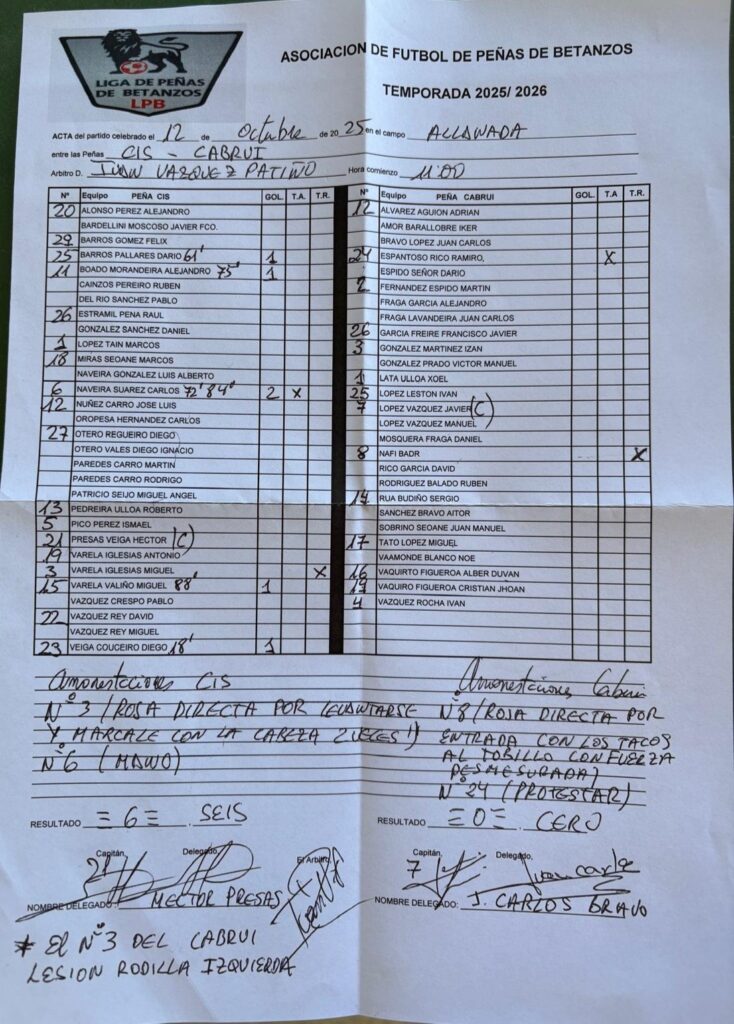 LIGA DE PEÑAS
DE BETANZOS
LPB
ASOCIACION DE FUTBOL DE PEÑAS DE BETANZOS
TEMPORADA 2025/ 2026
ACTA del partido celebrado el 12 de Octubre de 2025 en el campo ALLAWADA
entre las Peñas CIS - CABRUI
Arbitro D. IVAN VAZQUEZ PATIÑO Hora comienzo 11:00
Nº Equipo PEÑA CIS GOL. T.A. T.R.
20 ALONSO PEREZ ALEJANDRO
BARDELLINI MOSCOSO JAVIER FCO.
29 BARROS GOMEZ FELIX
25 BARROS PALLARES DARIO 61' 1
11 BOADO MORANDEIRA ALEJANDRO 75' 1
CAINZOS PEREIRO RUBEN
DEL RIO SANCHEZ PABLO
26 ESTRAMIL PENA RAUL
GONZALEZ SANCHEZ DANIEL
1 LOPEZ TAIN MARCOS
18 MIRAS SEOANE MARCOS
NAVEIRA GONZALEZ LUIS ALBERTO
6 NAVEIRA SUAREZ CARLOS 72' 84' 2 X
12 NUÑEZ CARRO JOSE LUIS
OROPESA HERNANDEZ CARLOS
27 OTERO REGUEIRO DIEGO
OTERO VALES DIEGO IGNACIO
PAREDES CARRO MARTIN
PAREDES CARRO RODRIGO
PATRICIO SEIJO MIGUEL ANGEL
13 PEDREIRA ULLOA ROBERTO
5 PICO PEREZ ISMAEL
21 PRESAS VEIGA HECTOR (C)
19 VARELA IGLESIAS ANTONIO
3 VARELA IGLESIAS MIGUEL X
15 VARELA VALIÑO MIGUEL 88' 1
VAZQUEZ CRESPO PABLO
22 VAZQUEZ REY DAVID
VAZQUEZ REY MIGUEL
23 VEIGA COUCEIRO DIEGO 18' 1
Nº Equipo PEÑA CABRUI GOL. T.A T.R.
12 ALVAREZ AGUION ADRIAN
AMOR BARALLOBRE IKER
BRAVO LOPEZ JUAN CARLOS
24 ESPANTOSO RICO RAMIRO, X
ESPIDO SEÑOR DARIO
2 FERNANDEZ ESPIDO MARTIN
FRAGA GARCIA ALEJANDRO
FRAGA LAVANDEIRA JUAN CARLOS
26 GARCIA FREIRE FRANCISCO JAVIER
3 GONZALEZ MARTINEZ IZAN
GONZALEZ PRADO VICTOR MANUEL
1 LATA ULLOA XOEL
25 LOPEZ LESTON IVAN
7 LOPEZ VAZQUEZ JAVIER (C)
LOPEZ VAZQUEZ MANUEL
MOSQUERA FRAGA DANIEL
8 NAFI BADR X
RICO GARCIA DAVID
RODRIGUEZ BALADO RUBEN
14 RUA BUDIÑO SERGIO
SANCHEZ BRAVO AITOR
SOBRINO SEOANE JUAN MANUEL
17 TATO LOPEZ MIGUEL
VAAMONDE BLANCO NOE
16 VAQUIRTO FIGUEROA ALBER DUVAN
19 VAQUIRO FIGUEROA CRISTIAN JHOAN
4 VAZQUEZ ROCHA IVAN
Amonestaciones CIS
Nº3 /ROSA DIRECTA POR LEVANTARSE
Y MARCALE CON LA CABEZA 2 VECES!)
Nº6 (MANO)
Amonestaciones Cabrui
Nº8/ROJA DIRECTA POR
ENTRADA CON LOS TACOS
AL TOBILLO CON FUERZA
DESMESURADA)
Nº 24 (PROTESTAR)
RESULTADO =6= SEIS
RESULTADO =0= CERO
Capitán, Delegado, El Arbitro,
21
NOMBRE DELEGADO: HECTOR PRESAS
Capitán, Delegado,
7 Juan Carlos
NOMBRE DELEGADO: J. CARLOS BRAVO
* El Nº3 DEL CABRUI
LESION RODILLA IZQUIERDA